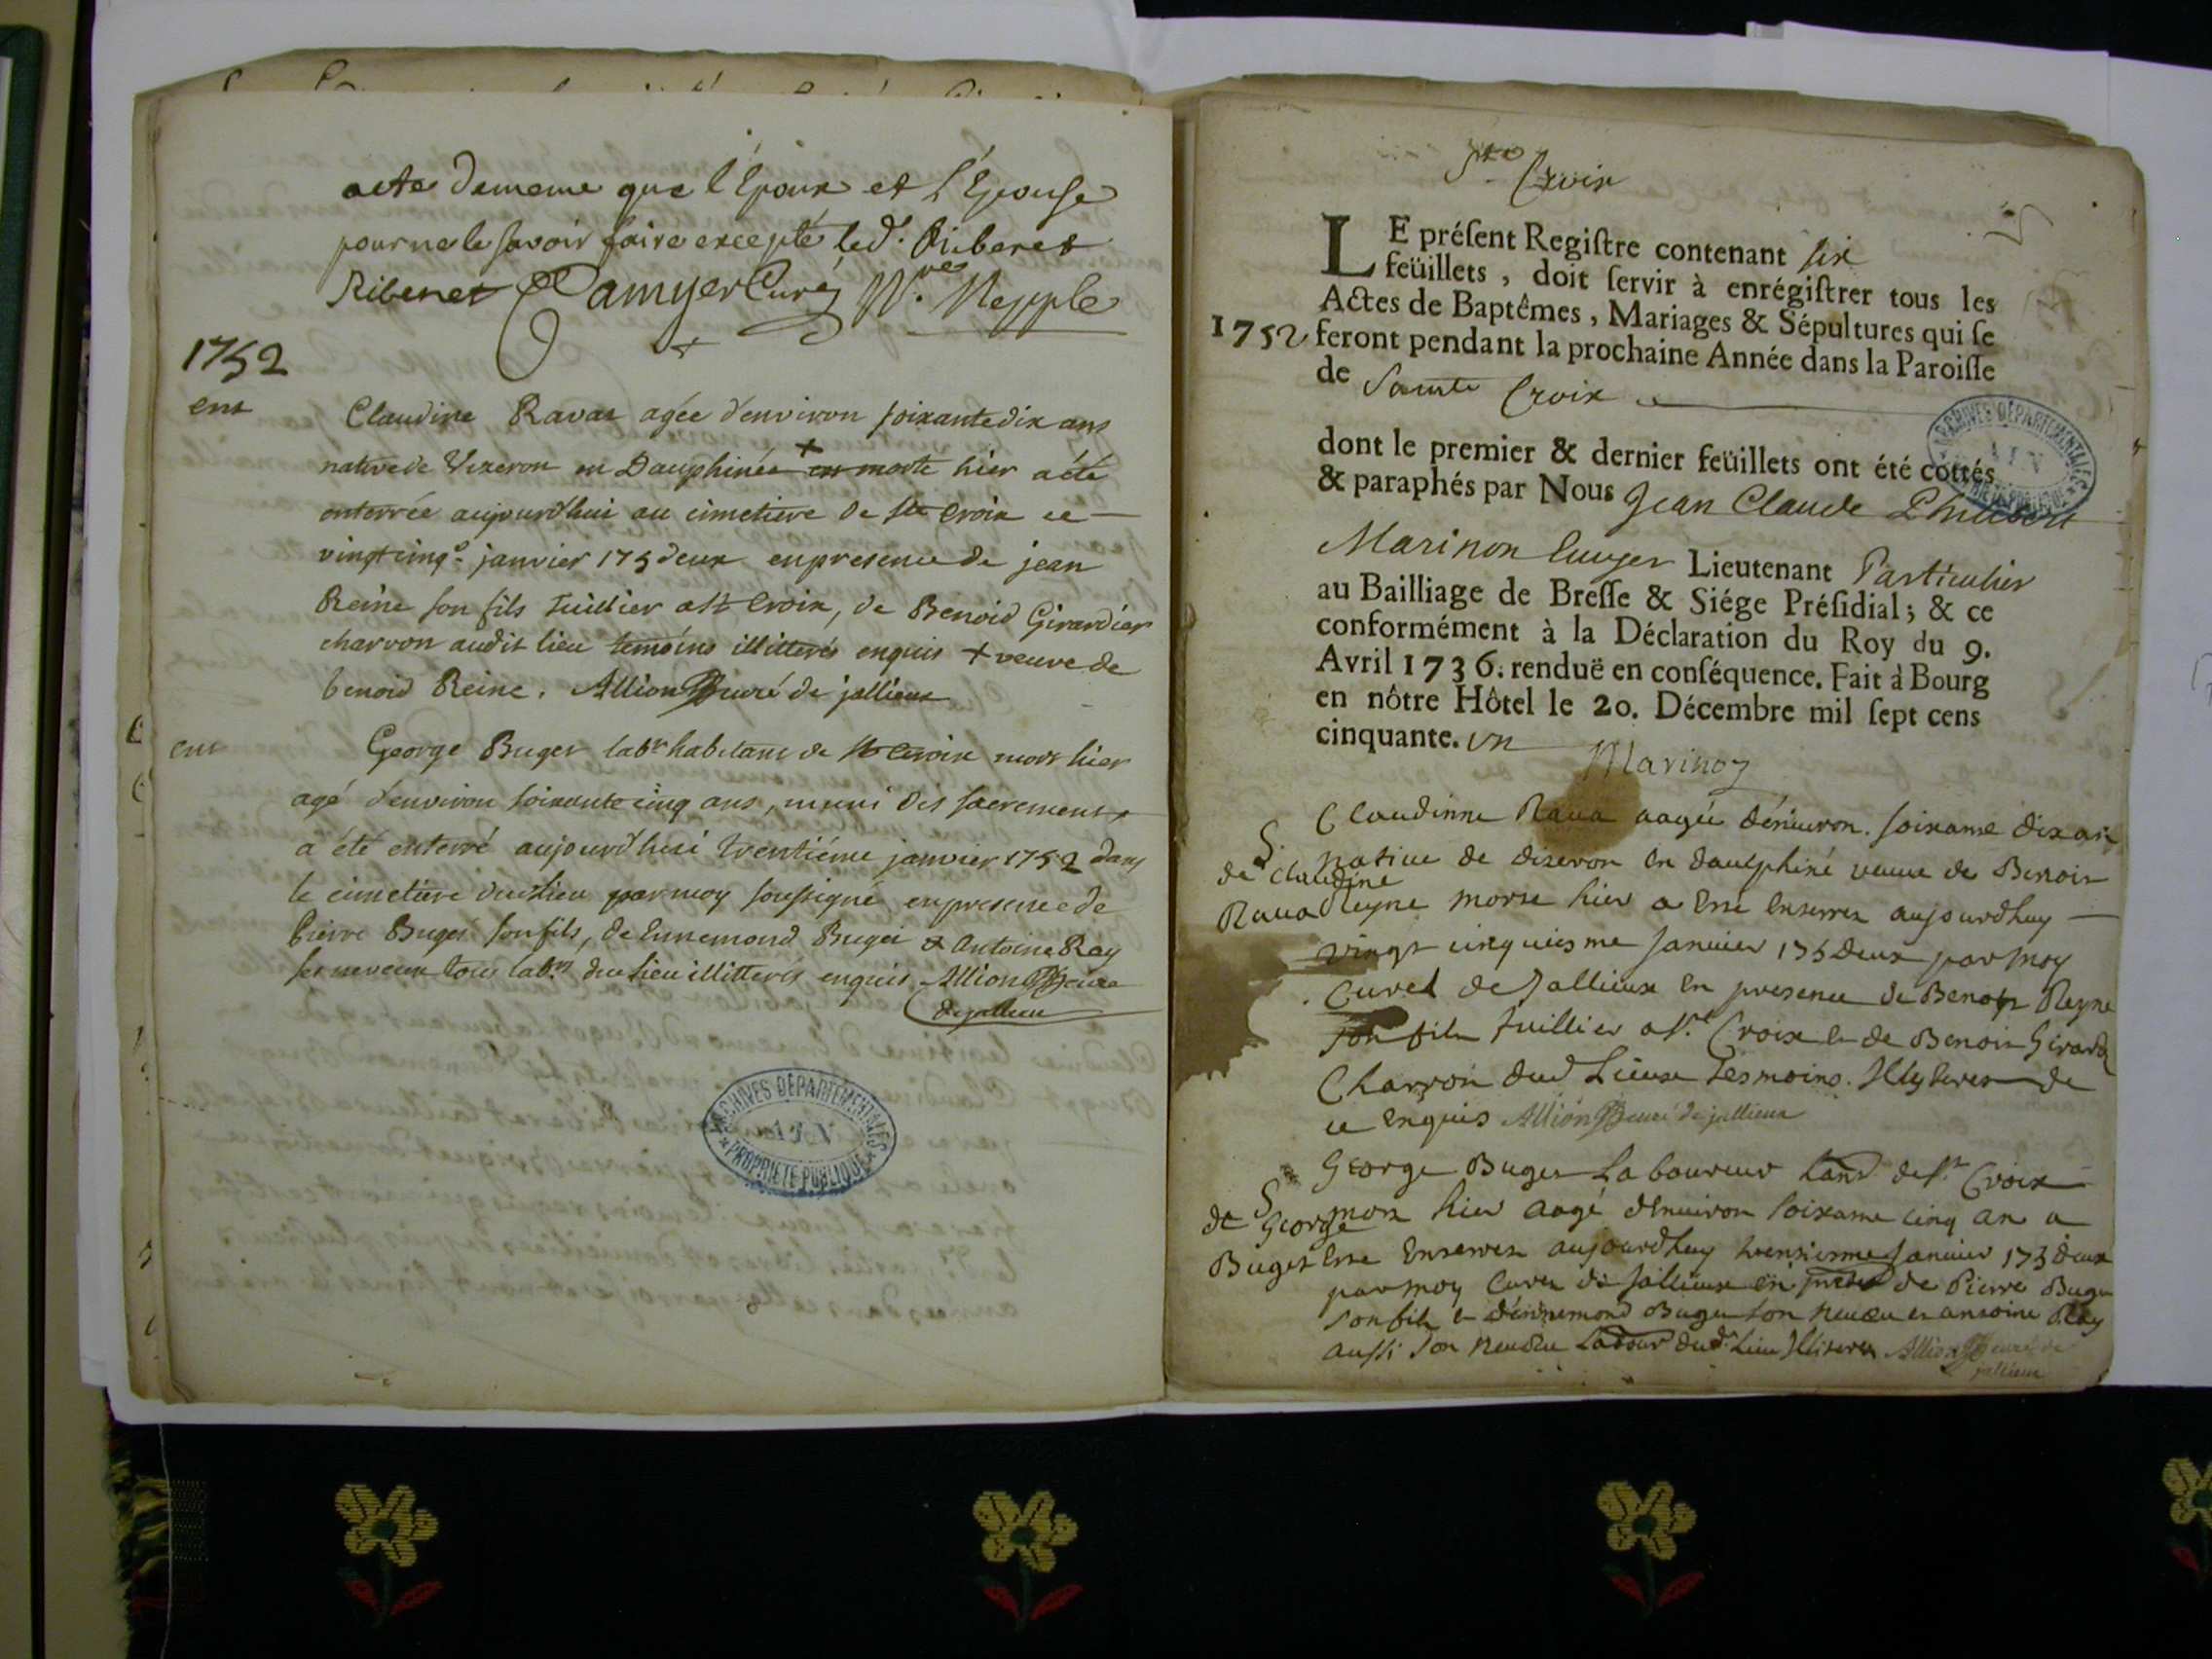 acte demême que l'Epoux et l'Epouse
pour ne le savoir faire excepté led. Riberet
Riberet Camyer Curé Nepple
1752
ent
Claudine Ravat agée d'environ soixante dix ans
native de Vezeron en Dauphinée + morte hier a été
enterrée aujourd'hui au cimetiere de Ste Croix ce
vingt cinqe janvier 175 deux en presence de jean
Reine son fils tuillier a Ste Croix, de Benoid Girardier
charron audit lieu temoins illitterés enquis + veuve de
benoid Reine. Allion curé de jallieux
ent
George Buget labr habitant de Ste Croix mort hier
agé d'environ soixante cinq ans, muni des sacrements
a été enterré aujourd'hui trentiéme janvier 1752 dans
le cimetiere dud lieu par moy soussigné en presence de
Pierre Buget son fils, de Ennemond Buget & Antoine Ray
ses neveux tous labrs dud lieu illitterés enquis Allion curé
de jallieux
ARCHIVES DÉPARTEMENTALES
AIN
PROPRIÉTÉ PUBLIQUE
Ste Croix
LE préſent Regiſtre contenant six
feüillets, doit ſervir à enrégiſtrer tous les
Actes de Baptêmes, Mariages & Sépultures qui ſe
1752 feront pendant la prochaine Année dans la Paroiſſe
de Sainte Croix
dont le premier & dernier feüillets ont été cottés
& paraphés par Nous Jean Claude Philibert
Marinon Lieutenant Particulier
au Bailliage de Breſſe & Siége Préſidial; & ce
conformément à la Déclaration du Roy du 9.
Avril 1736. renduë en conſéquence. Fait à Bourg
en nôtre Hôtel le 20. Décembre mil ſept cens
cinquante. un
Marinon
ARCHIVES DÉPARTEMENTALES
AIN
PROPRIÉTÉ PUBLIQUE
S.
de Claudine
Raua
Claudinne Raua aagée d'enuiron soixante dix an
natiue de diseron en daulphiné veuue de Benoit
Reyne morte hier a esté enterrée aujourdhuy
vingt cinquiesme januier 175 deux par moy
Curé de Jallieux en presence de Benoit Reyne
son fils tuillier a Ste Croix et de Benoit Girard
Charron dud Lieux tesmoins Illyteres de
ce enquis Allion curé de jallieux
S.
de George
Buget
George Buget Laboureur de Ste Croix
mort hier aagé d'enuiron soixante cinq an a
esté enterré aujourdhuy trentiesme januier 175 deux
par moy Curé de Jallieux en de Pierre Buget
son fils et d'ennemond Buget son neueu et antoine Rey
aussi son neueu Labour dud. Lieu Illiteres Allion curé de
jallieux